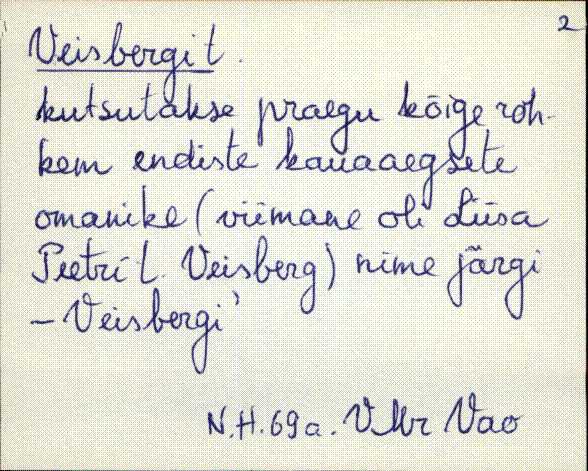 2
Veisbergi t.
kutsutakse praegu kõige roh-
kem endiste kauaaegsete
omanike (viimane oli Liisa
Peetri t. Veisberg) nime järgi
– Veisbergi'
N.H. 69 a. VMr Vao